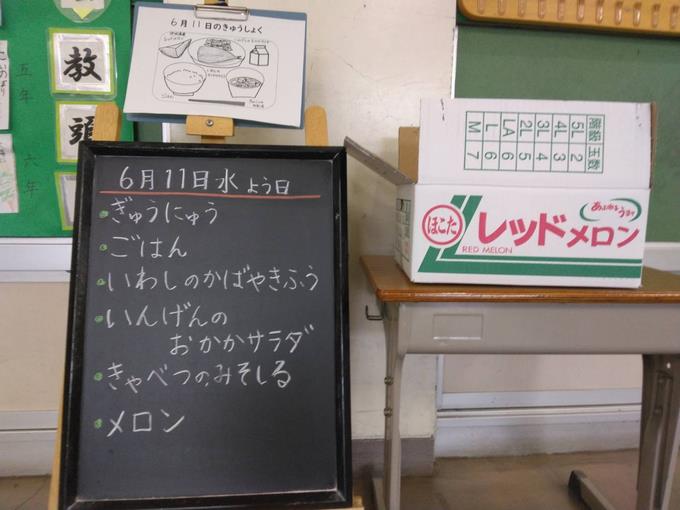 6月11日のきゅうしょく
ごはん
教
五年
頭
六年
6月11日水よう日
ぎゅうにゅう
ごはん
いわしのかばやきふう
いんげんの
おかかサラダ
きゃべつのみそしる
メロン
階級 玉数
5L 2
4L 3
3L 4
2L 5
LA 6
L 6
M 7
ほこた
レッドメロン
RED MELON